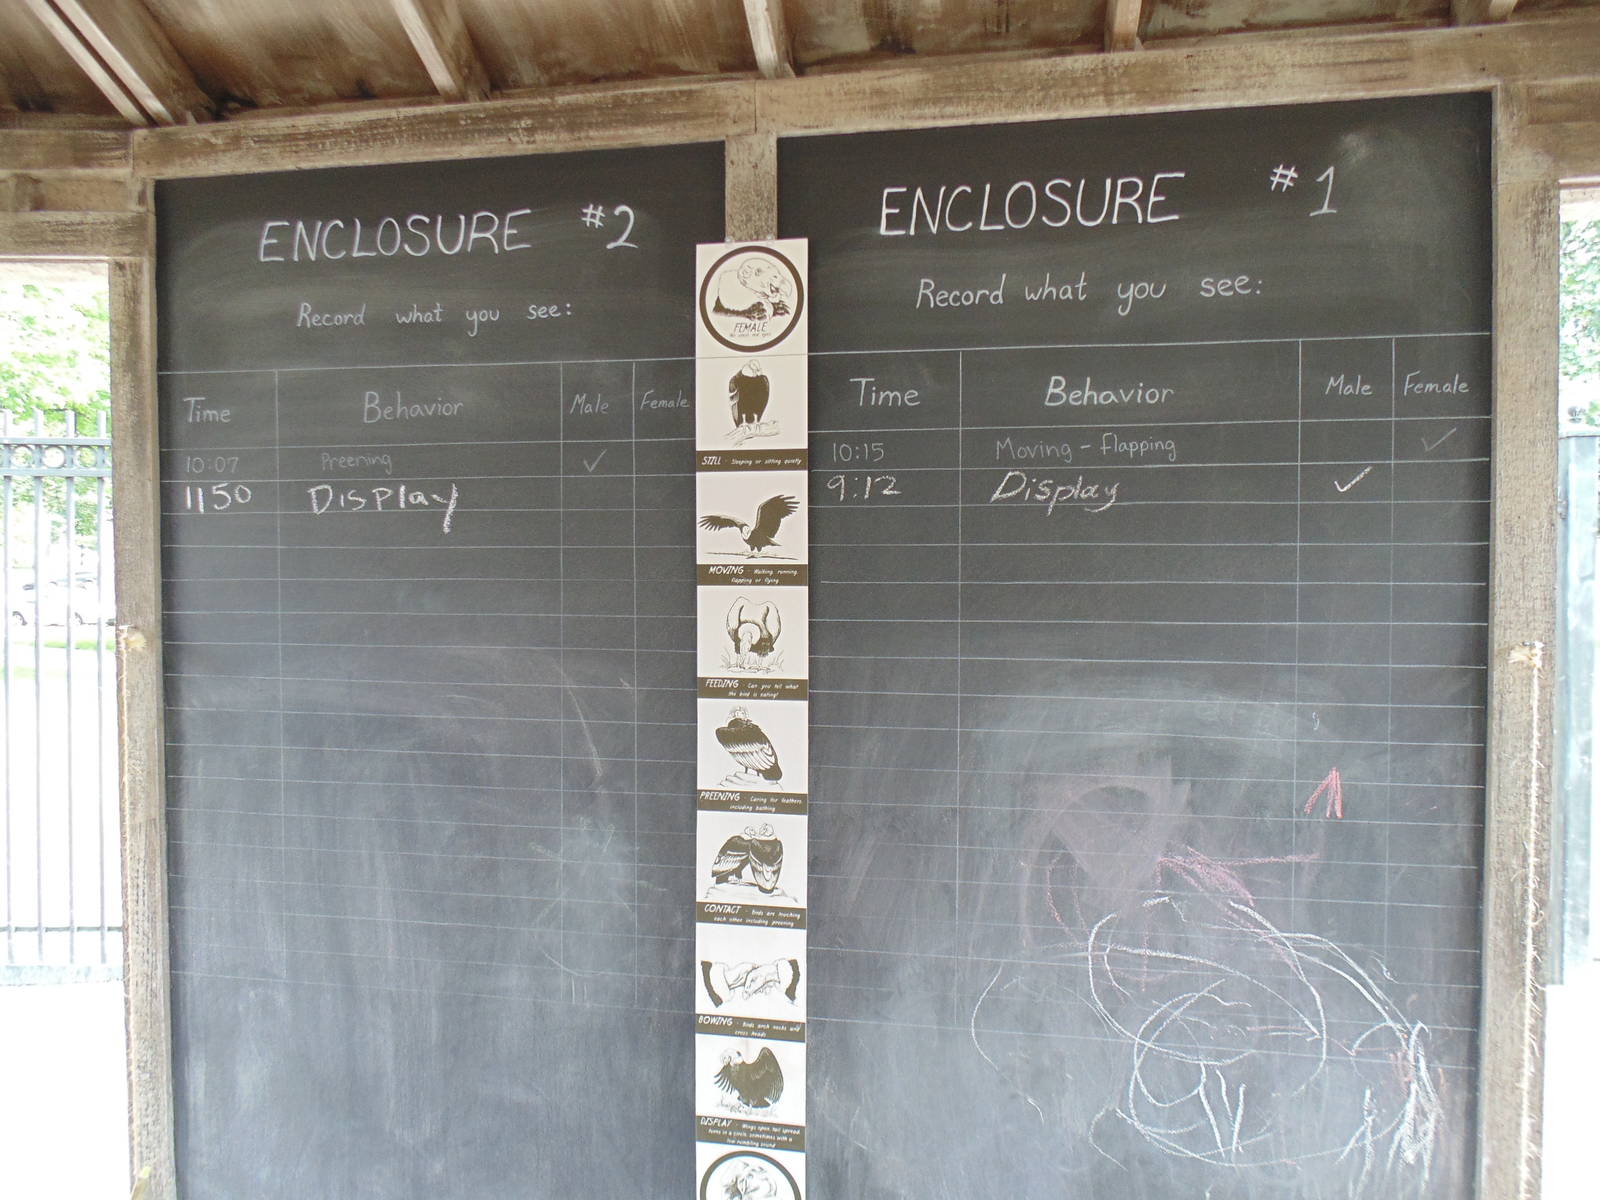 ENCLOSURE #2
Record what you see:
Time Behavior Male Female
10:07 Preening ✓
1150 Display
FEMALE
STILL - Sleeping or sitting quietly
MOVING - Walking, running,
flapping or flying
FEEDING - Can you tell what
the bird is eating?
PREENING - Caring for feathers
including bathing
CONTACT - Birds are touching
each other including preening
BOWING - Birds arch necks and
cross heads
DISPLAY - Wings open, tail spread,
turns in a circle, sometimes with a
low rumbling sound
ENCLOSURE #1
Record what you see:
Time Behavior Male Female
10:15 Moving - flapping ✓
9:12 Display ✓